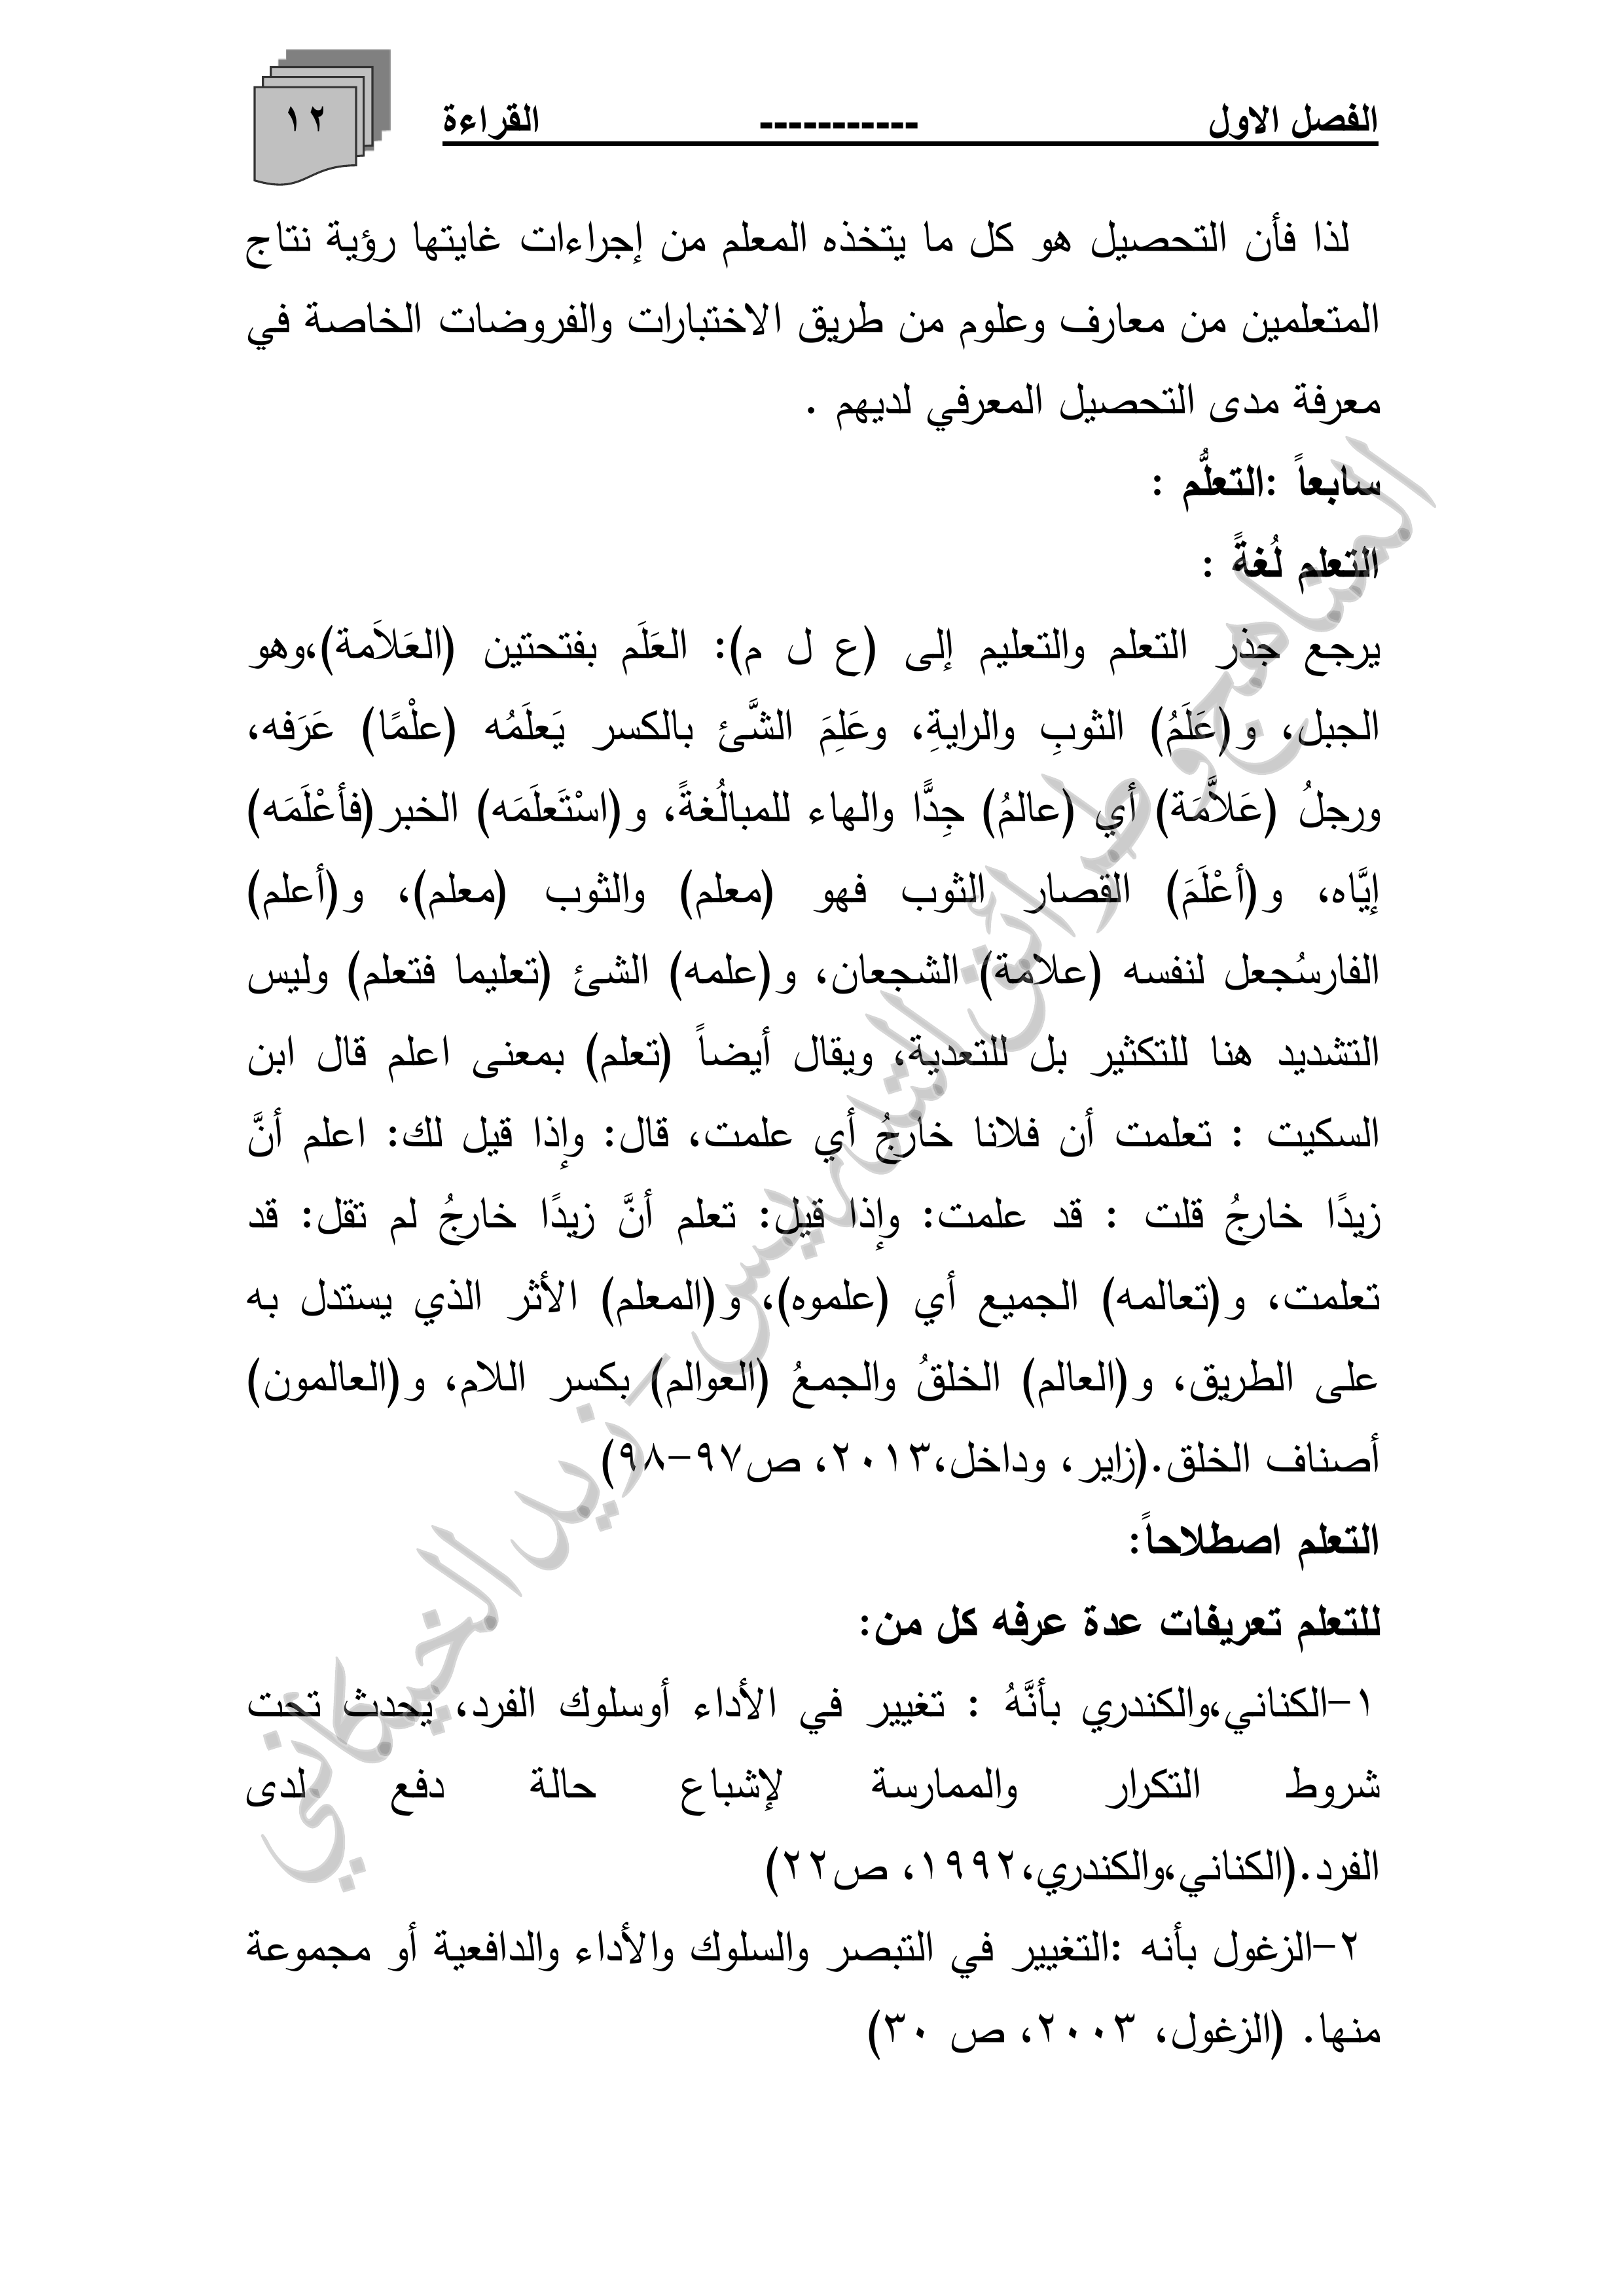 الفصل الاول ----------- القراءة
١٢
لذا فأن التحصيل هو كل ما يتخذه المعلم من إجراءات غايتها رؤية نتاج
المتعلمين من معارف وعلوم من طريق الاختبارات والفروضات الخاصة في
معرفة مدى التحصيل المعرفي لديهم .
سابعاً :التعلُّم :
التعلم لُغةً :
يرجع جذر التعلم والتعليم إلى (ع ل م): العَلَم بفتحتين (العَلاَمة)،وهو
الجبل، و(عَلَمُ) الثوبِ والرايةِ، وعَلِمَ الشَّئ بالكسر يَعلَمُه (علْمًا) عَرَفه،
ورجلُ (عَلاَّمَة) أي (عالمُ) جِدًّا والهاء للمبالُغةً، و(اسْتَعلَمَه) الخبر(فأعْلَمَه)
إيَّاه، و(أعْلَمَ) القصار الثوب فهو (معلم) والثوب (معلم)، و(أعلم)
الفارسُجعل لنفسه (علامة) الشجعان، و(علمه) الشئ (تعليما فتعلم) وليس
التشديد هنا للتكثير بل للتعدية، ويقال أيضاً (تعلم) بمعنى اعلم قال ابن
السكيت : تعلمت أن فلانا خارجُ أي علمت، قال: وإذا قيل لك: اعلم أنَّ
زيدًا خارجُ قلت : قد علمت: وإذا قيل: تعلم أنَّ زيدًا خارجُ لم تقل: قد
تعلمت، و(تعالمه) الجميع أي (علموه)، و(المعلم) الأثر الذي يستدل به
على الطريق، و(العالم) الخلقُ والجمعُ (العوالم) بكسر اللام، و(العالمون)
أصناف الخلق.(زاير، وداخل،٢٠١٣، ص٩٧-٩٨)
التعلم اصطلاحاً:
للتعلم تعريفات عدة عرفه كل من:
١-الكناني،والكندري بأنَّهُ : تغيير في الأداء أوسلوك الفرد، يحدث تحت
شروط التكرار والممارسة لإشباع حالة دفع لدى
الفرد.(الكناني،والكندري،١٩٩٢، ص٢٢)
٢-الزغول بأنه :التغيير في التبصر والسلوك والأداء والدافعية أو مجموعة
منها. (الزغول، ٢٠٠٣، ص ٣٠)
المناهج وطرائق التدريس - زيد الخيكاني